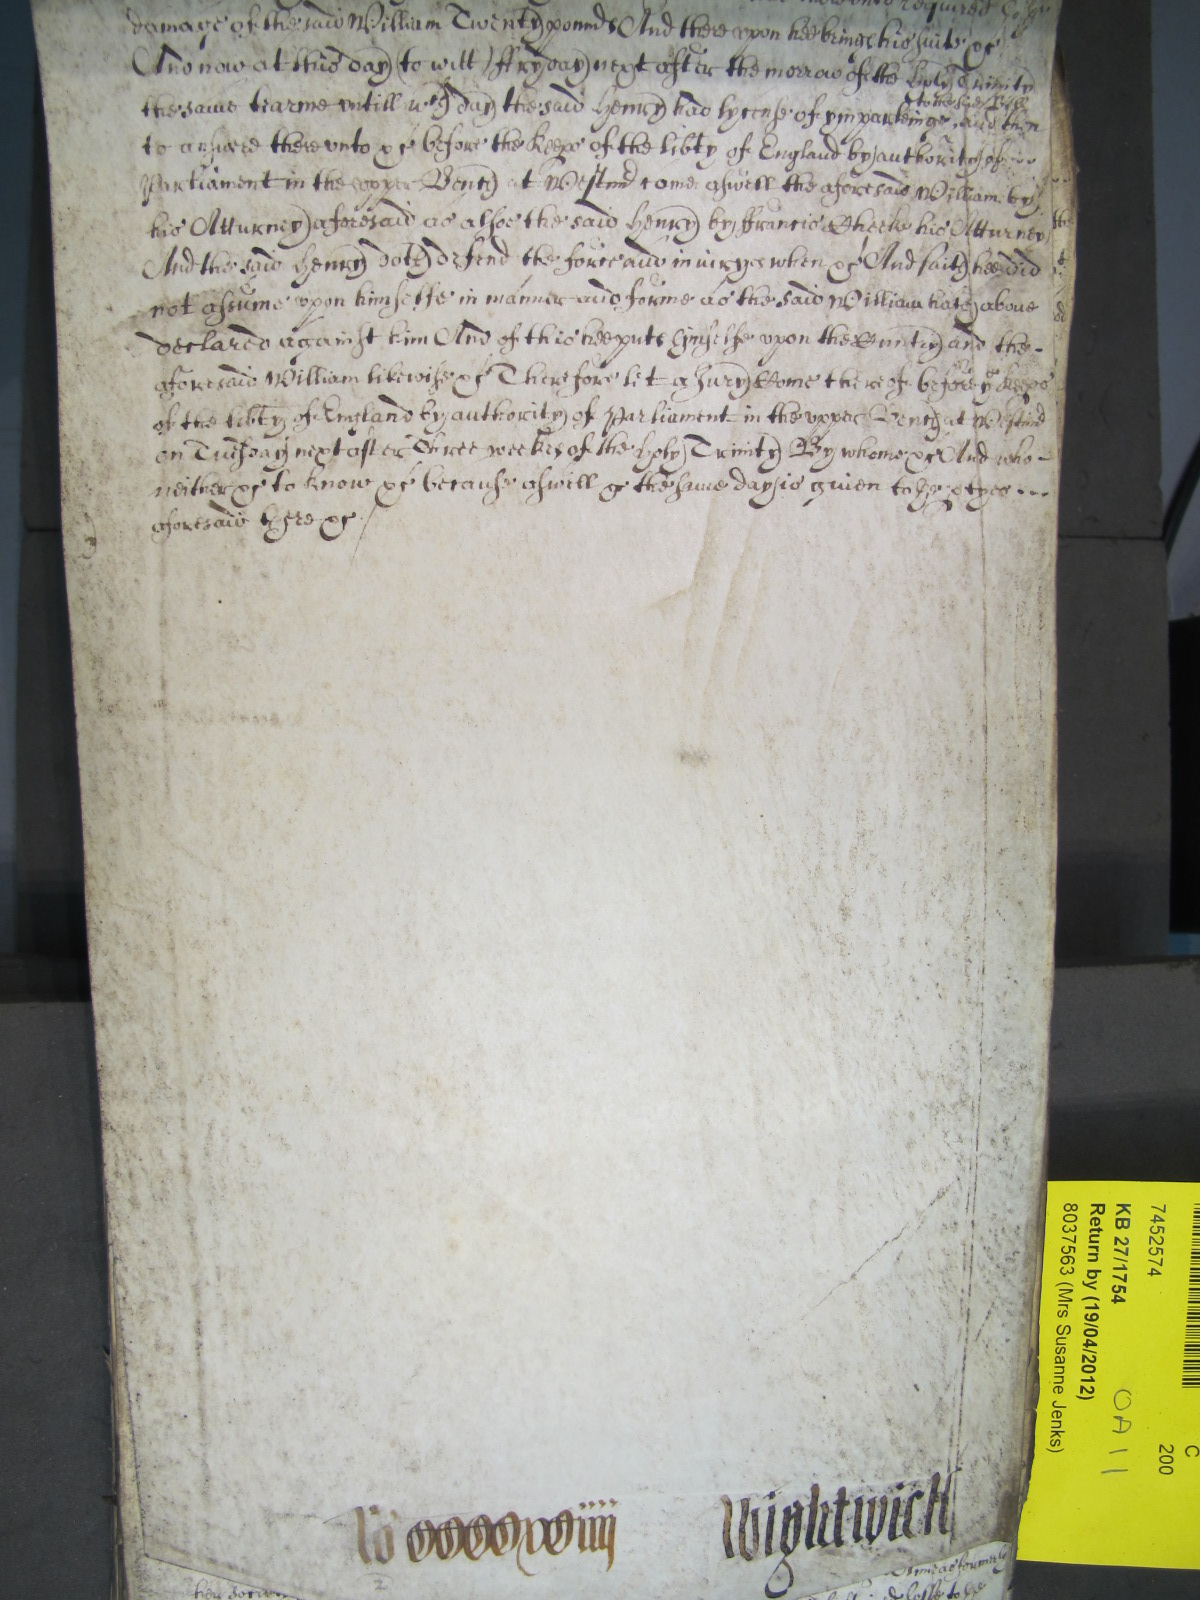 damage of the said William Twenty pounds And there upon hee brings his suite &c
And now at this day (to witt) ffryday next after the morrow of the holy Trinity
the same tearme untill wch day the said Henry had lycense of ymparleinge and then
to the said Bill
to answere there unto &c before the Keeps of the libty of England by authority of
Parliament in the upper Bench at Westmr come aswell the aforesaid William by
his Atturney aforesaid as alsoe the said Henry by ffrancis his Atturney
And the said Henry doth defend the force and iniurye when &c And saith hee did
not assume upon himselfe in manner and forme as the said William hath above
declared against him And of this hee puts himselfe upon the Cuntry and the
aforesaid William likewise &c Therefore let a Jury Come thereof before ye Keeps
of the libty of England by authority of Parliament in the upper Bench at Westmr
on Tuesday next after Three weekes of the holy Trinity By whome &c And who
neither &c to know &c because aswell &c the same day is given to the ptyes
aforesaid there &c
Wightwick
7452574
KB 27/1754
Return by (19/04/2012)
8037563 (Mrs Susanne Jenks)
C
200
OA 11